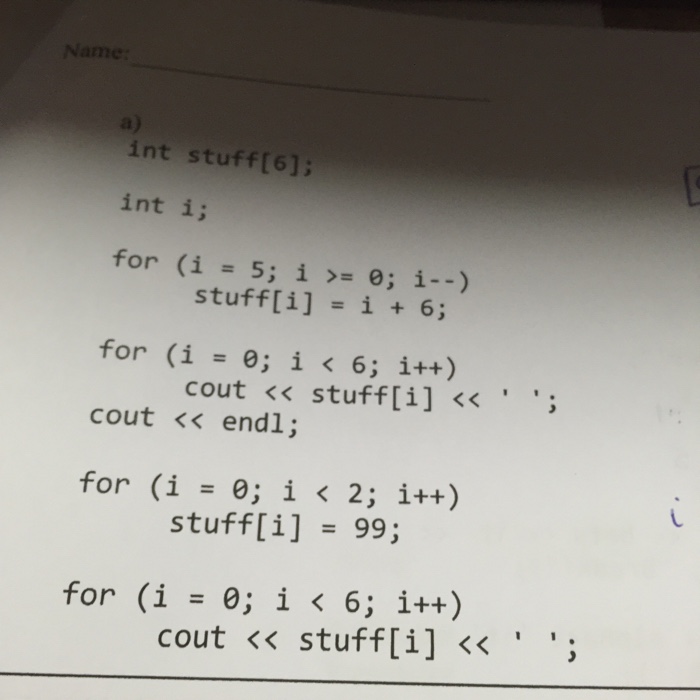 Name:
a)
int stuff[6];
int i;
for (i = 5; i >= 0; i--)
stuff[i] = i + 6;
for (i = 0; i < 6; i++)
cout << stuff[i] << ' ';
cout << endl;
for (i = 0; i < 2; i++)
stuff[i] = 99;
i
for (i = 0; i < 6; i++)
cout << stuff[i] << ' ';